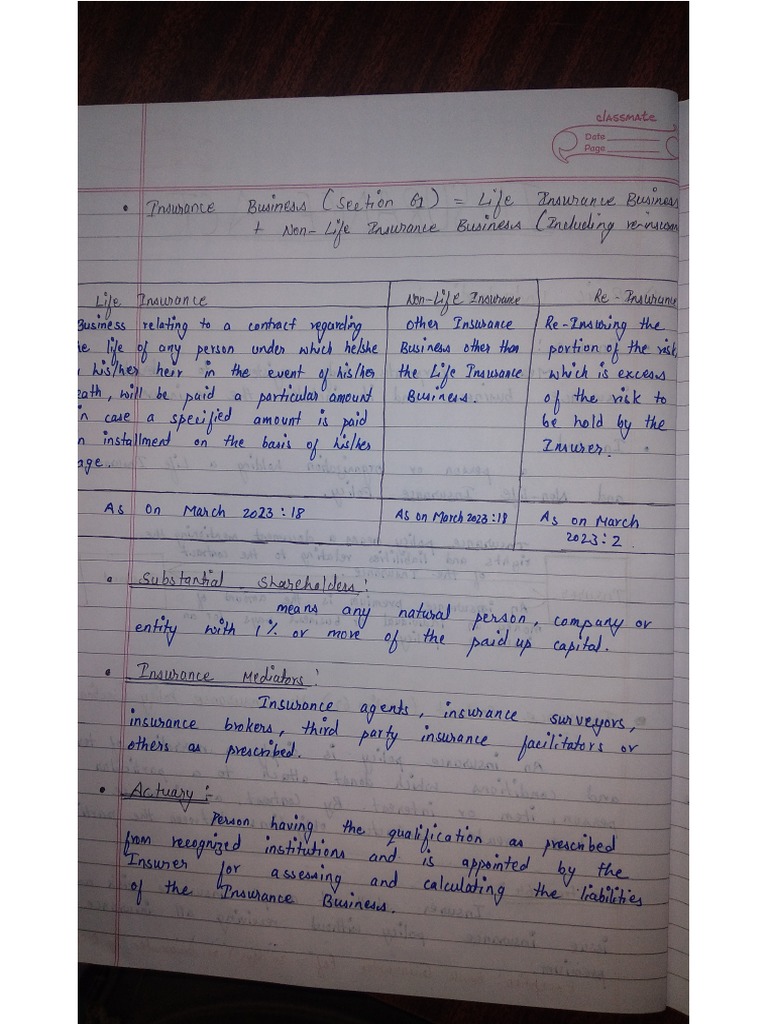 classmate
Date
Page
• Insurance Business (Section 61) = Life Insurance Business
+ Non-Life Insurance Business (Including re-insuran
Life Insurance
Business relating to a contract regarding
he life of any person under which he/she
his/her heir in the event of his/her
eath, will be paid a particular amount
in case a specified amount is paid
n installment on the basis of his/her
age.
As on March 2023:18
Non-Life Insurance
Other Insurance
Business other than
the Life Insurance
Business.
As on March 2023:18
Re-Insuranc
Re-Insuring the
portion of the risk
which is excess
of the risk to
be hold by the
Insurer.
As on March
2023:2.
• Substantial Shareholders:
means any natural person, company or
entity with 1% or more of the paid up capital.
• Insurance Mediators:
Insurance agents, insurance surveyors,
insurance brokers, third party insurance facilitators or
others as prescribed.
• Actuary:-
Person having the qualification as prescribed
from recognized institutions and is appointed by the
Insurer for assessing and calculating the liabilities
of the Insurance Business.